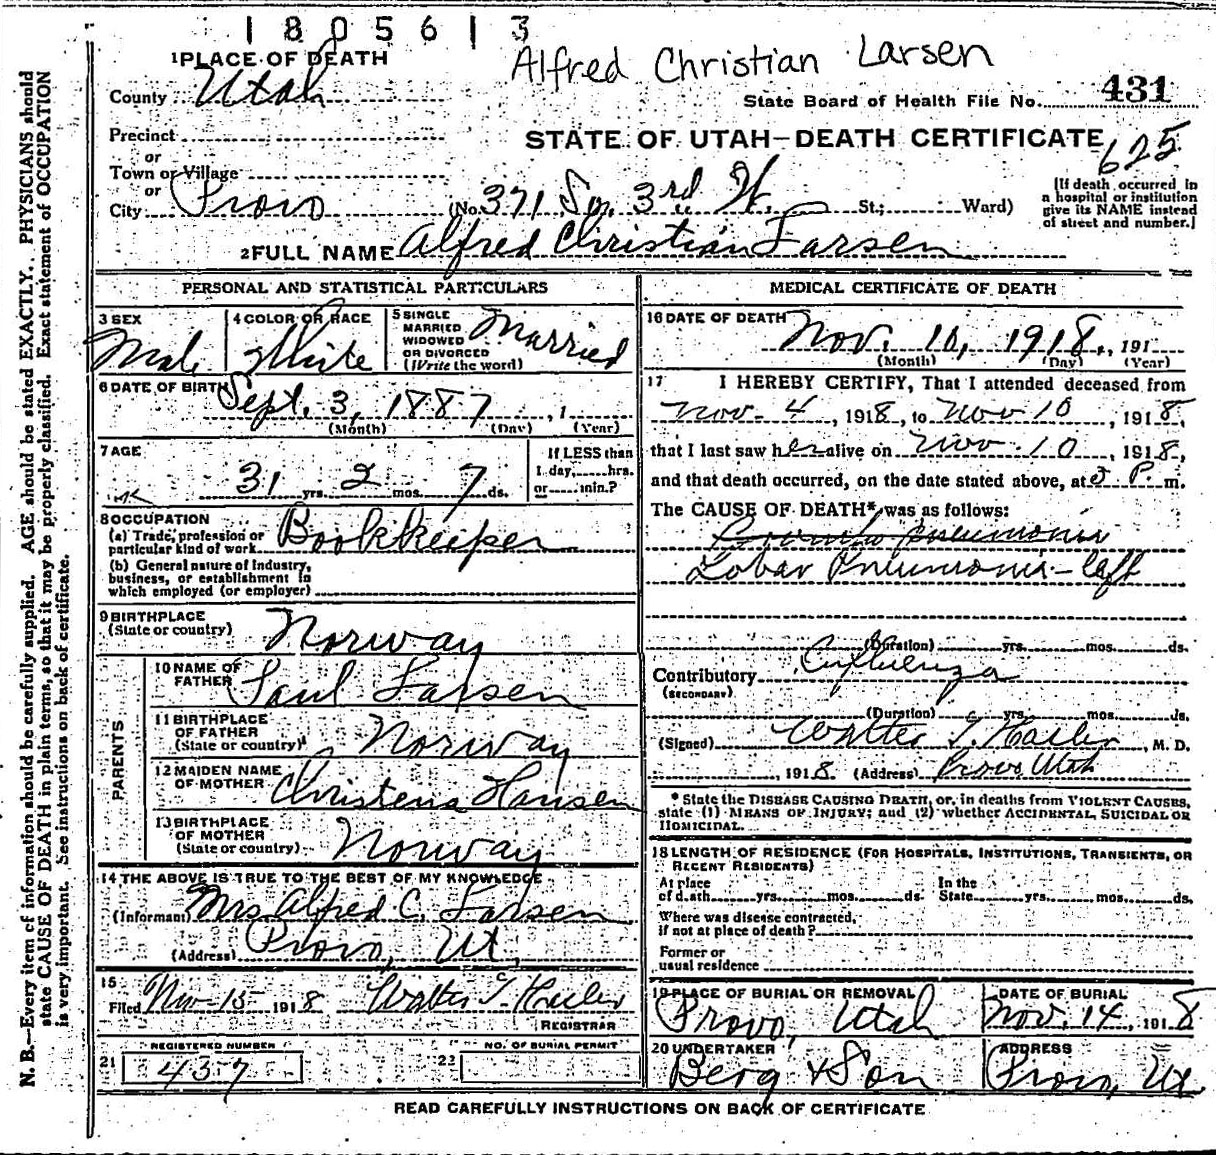 1805613
Alfred Christian Larsen
1 PLACE OF DEATH
County Utah
State Board of Health File No. 431
Precinct
or
STATE OF UTAH—DEATH CERTIFICATE
625
Town or Village
or
City Provo (No. 371 So. 3rd W. St.; Ward)
(If death occurred in
a hospital or institution
give its NAME instead
of street and number.)
2 FULL NAME Alfred Christian Larsen
PERSONAL AND STATISTICAL PARTICULARS
3 SEX
Male
4 COLOR OR RACE
White
5 SINGLE
MARRIED
WIDOWED
OR DIVORCED
(Write the word)
Married
6 DATE OF BIRTH Sept. 3, 1887, 1
(Month) (Day) (Year)
7 AGE
31 yrs. 2 mos. 7 ds.
If LESS than
1 day, hrs.
or min.?
8 OCCUPATION
(a) Trade, profession or
particular kind of work Bookkeeper
(b) General nature of Industry,
business, or establishment in
which employed (or employer)
9 BIRTHPLACE
(State or country) Norway
PARENTS
10 NAME OF
FATHER Paul Larsen
11 BIRTHPLACE
OF FATHER
(State or country) Norway
12 MAIDEN NAME
OF MOTHER Christena Hansen
13 BIRTHPLACE
OF MOTHER
(State or country) Norway
14 THE ABOVE IS TRUE TO THE BEST OF MY KNOWLEDGE
(Informant) Mrs Alfred C. Larsen
(Address) Provo, Ut,
15
Filed Nov-15 1918 Walter T. Hasler
REGISTRAR
REGISTERED NUMBER
21 437
NO. OF BURIAL PERMIT
22
MEDICAL CERTIFICATE OF DEATH
16 DATE OF DEATH
Nov. 10, 1918, 191
(Month) (Day) (Year)
17 I HEREBY CERTIFY, That I attended deceased from
Nov. 4, 1918, to Nov 10, 1918,
that I last saw her alive on Nov 10, 1918,
and that death occurred, on the date stated above, at P. m.
The CAUSE OF DEATH* was as follows:
Broncho pneumonia
Lobar Pneumonia-left
(Duration) yrs. mos. ds.
Contributory Influenza
(SECONDARY)
(Duration) yrs. mos. ds.
(Signed) Walter T. Hasler, M. D.
, 1918 (Address) Provo Utah
* State the DISEASE CAUSING DEATH, or, in deaths from VIOLENT CAUSES,
state (1) MEANS OF INJURY; and (2) whether ACCIDENTAL, SUICIDAL OR
HOMICIDAL.
18 LENGTH OF RESIDENCE (FOR HOSPITALS, INSTITUTIONS, TRANSIENTS, OR
RECENT RESIDENTS)
At place
of death yrs. mos. ds.
In the
State yrs. mos. ds.
Where was disease contracted,
if not at place of death?
Former or
usual residence
19 PLACE OF BURIAL OR REMOVAL
Provo, Utah
DATE OF BURIAL
Nov. 14, 1918
20 UNDERTAKER
Berg & Son
ADDRESS
Provo, Ut
READ CAREFULLY INSTRUCTIONS ON BACK OF CERTIFICATE
N. B.—Every item of information should be carefully supplied. AGE should be stated EXACTLY. PHYSICIANS should
state CAUSE OF DEATH in plain terms, so that it may be properly classified. Exact statement of OCCUPATION
is very important. See instructions on back of certificate.